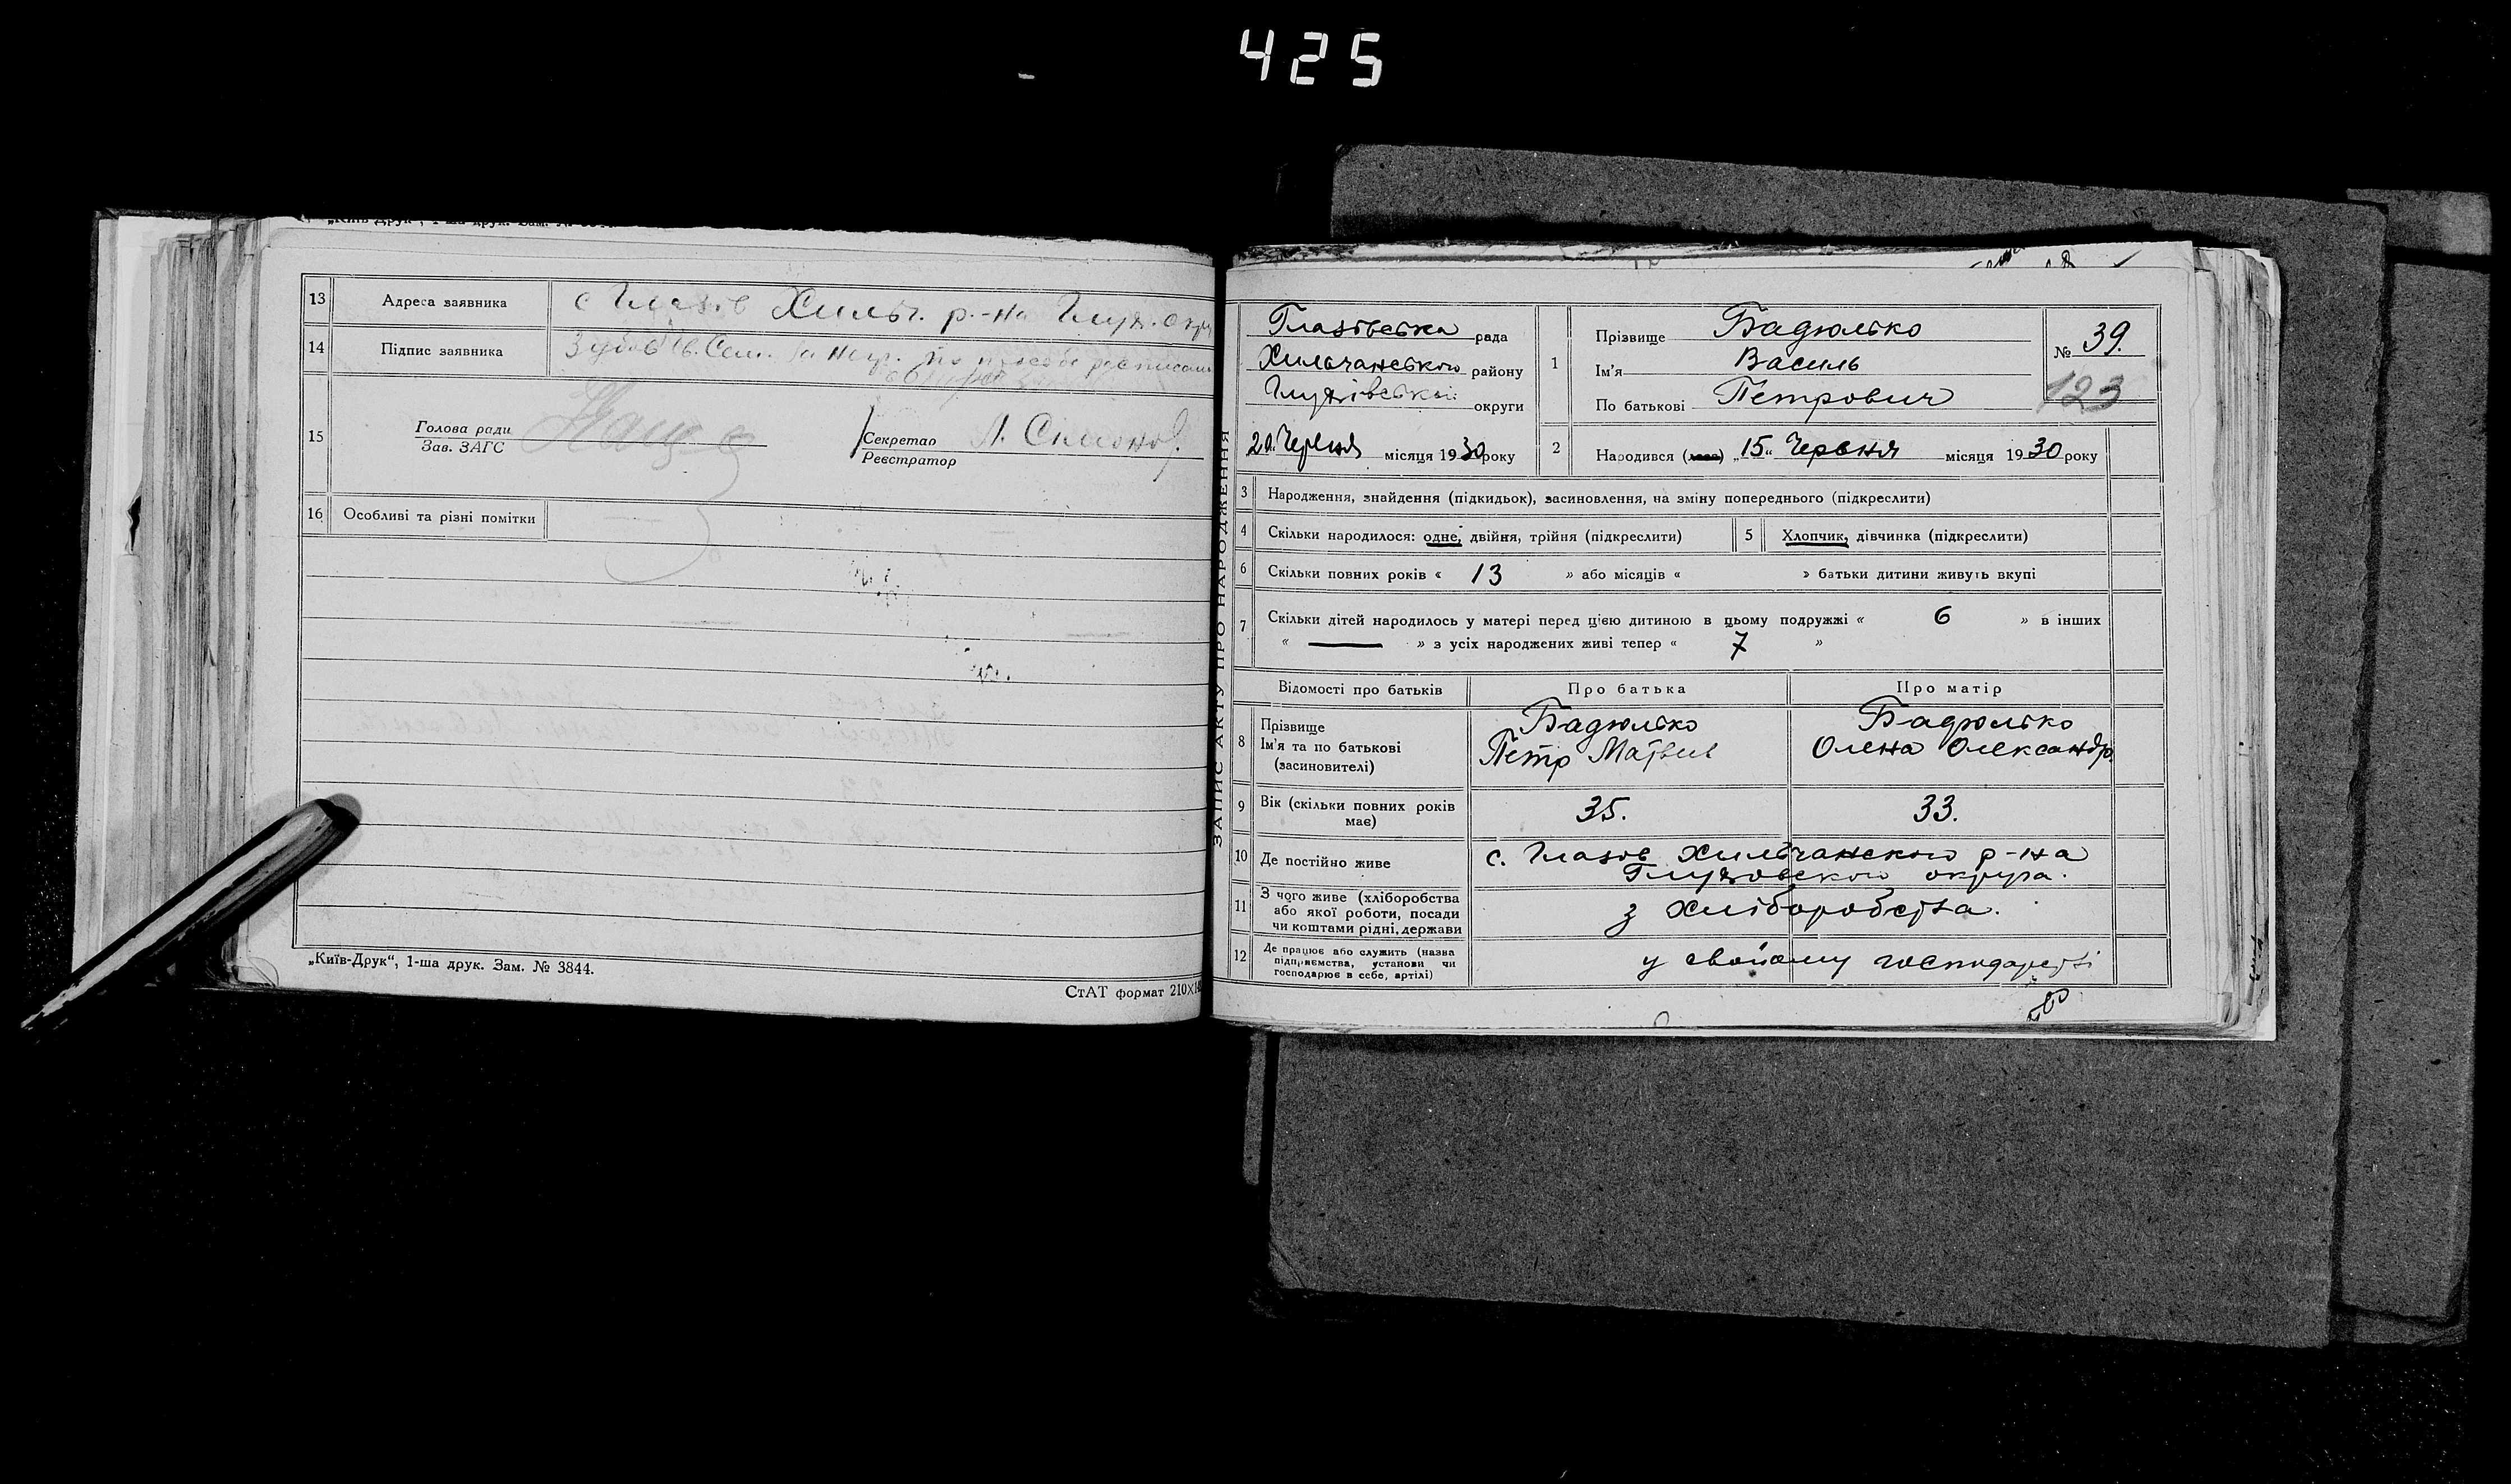 425
13 Адреса заявника с Глазів Хильч. р.-на Глух. окру
14 Підпис заявника
15 Голова ради
Зав. ЗАГС
Секретар
Реєстратор
16 Особливі та різні помітки
„Київ-Друк“, 1-ша друк. Зам. № 3844.
СтАТ формат 210×1
ЗАПИС АКТУ ПРО НАРОДЖЕННЯ
Глазівська рада
Хильчанського району
Глухівської округи
20 Червня місяця 1930 року
1 Прізвище Бадюлько
Ім'я Василь
По батькові Петрович
№ 39.
123
2 Народився „15“ Червня місяця 1930 року
3 Народження, знайдення (підкидьок), засиновлення, на зміну попереднього (підкреслити)
4 Скільки народилося: одне, двійня, трійня (підкреслити) 5 Хлопчик, дівчинка (підкреслити)
6 Скільки повних років « 13 » або місяців « » батьки дитини живуть вкупі
7 Скільки дітей народилось у матері перед цією дитиною в цьому подружжі « 6 » в інших
« — » з усіх народжених живі тепер « 7 »
Відомості про батьків Про батька Про матір
8 Прізвище Бадюлько Бадюлько
Ім'я та по батькові Петр Матвив Олена Олександр.
(засновителі)
9 Вік (скільки повних років має) 35. 33.
10 Де постійно живе с. Глазов Хильчанского р-на
Глуховского округа.
11 З чого живе (хліборобства
або якої роботи, посади
чи коштами рідні, держави
з хліборобства.
12 Де працює або служить (назва
підприємства, установи чи
господарює в себе, артілі)
у свойому господарстві